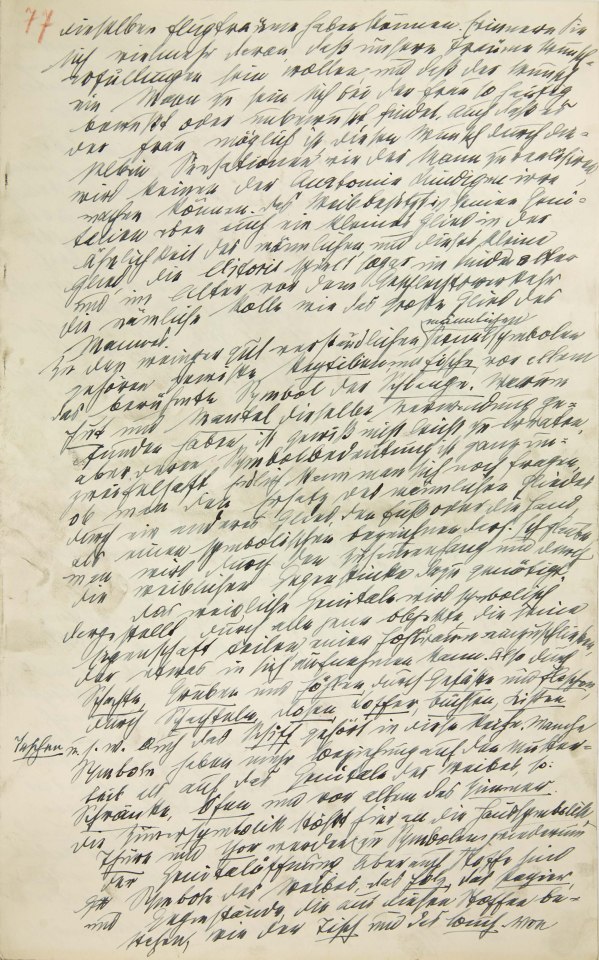 77
dieselben Flugträume haben können. Erinnern Sie
sich vielmehr daran, daß unsere Träume Wunsch-
erfüllungen sein wollen, und daß der Wunsch
ein Mann zu sein sich bei der Frau so häufig
bewußt oder unbewußt findet. Auch daß es
der Frau möglich ist, diesen Wunsch durch die-
selben Sensationen wie der Mann zu realisiren
wird keinen der Anatomie Kundigen irre
machen können. Das Weib besitzt in seinen Geni-
talien eben auch ein kleines Glied in der
Ähnlichkeit des männlichen und dieses kleine
Glied, die Clitoris spielt sogar im Kindesalter
und im Alter vor dem Geschlechtsverkehr
die nämliche Rolle wie das große Glied des
Mannes.
Zu den weniger gut verständlichen männlichen Sexualsymbolen
gehören gewisse Reptilien und Fische, vor allem
das berühmte Symbol der Schlange. Warum
Hut und Mantel dieselbe Verwendung ge-
funden haben, ist gewiß nicht leicht zu erraten,
aber deren Symbolbedeutung ist ganz un-
zweifelhaft. Endlich kann man sich noch fragen,
ob man den Ersatz des männlichen Gliedes
durch ein anderes Glied, den Fuß oder die Hand,
als einen symbolischen bezeichnen darf. Ich glaube,
man wird durch den Zusammenhang und durch
die weiblichen Gegenstücke dazu genötigt.
Das weibliche Genitale wird symbolisch
dargestellt durch alle jene Objekte, die seine
Eigenschaft teilen einen Hohlraum einzuschließen
der etwas in sich aufnehmen kann. Also durch
Schachte, Gruben und Höhlen, durch Gefäße und Flaschen
durch Schachteln, Dosen, Koffer, Büchsen, Kisten
Taschen u. s. w. Auch das Schiff gehört in diese Reihe. Manche
Symbole haben mehr Beziehung auf den Mutter-
leib als auf das Genitale des Weibes, so:
Schränke, Öfen und vor allem das Zimmer.
Die Zimmersymbolik stößt hier an die Haussymbolik,
Thüre und Tor werden zu Symbolen wiederum
der Genitalöffnung. Aber auch Stoffe sind
Symbole des Weibes, das Holz, das Papier,
und Gegenstände, die aus diesen Stoffen be-
stehen, wie der Tisch und das Buch. Von